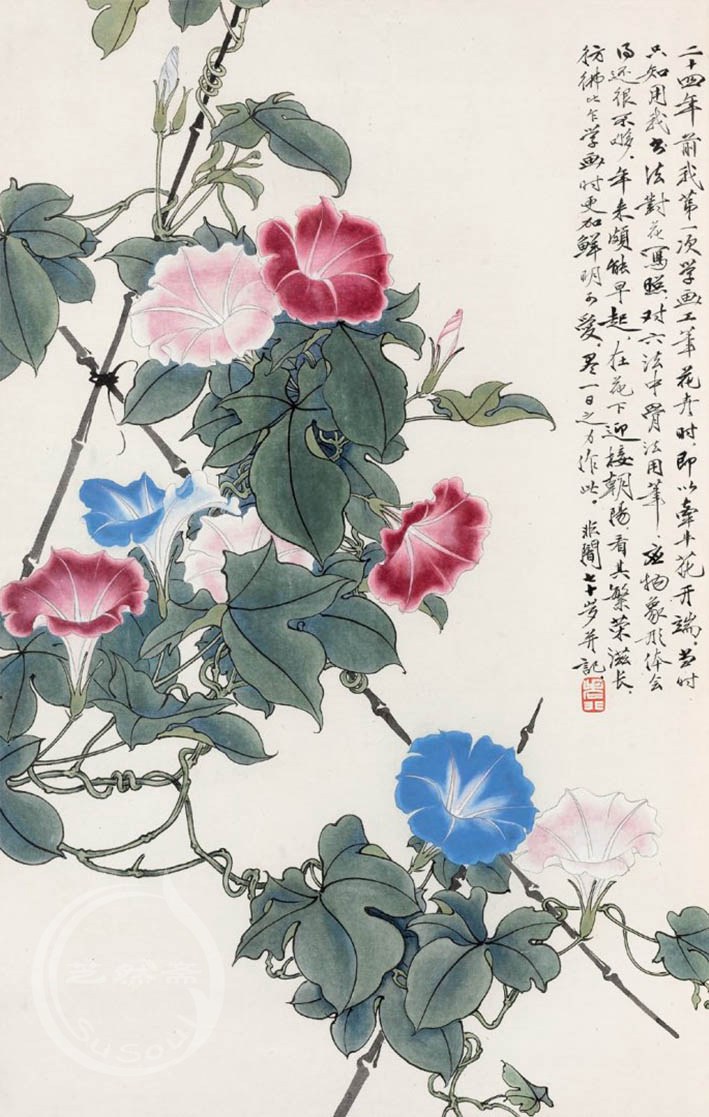 二十四年前我第一次学画工筆花卉时，即以牽牛花开端。当时
只知用我书法對花寫照，对六法中骨法用筆、应物象形体会
得还很不够。年来颇能早起，在花下迎接朝陽，看其繁荣滋长，
彷彿比乍学画时更加鮮明可爱。尽一日之力作此。非闇七十岁并記
SuSoul